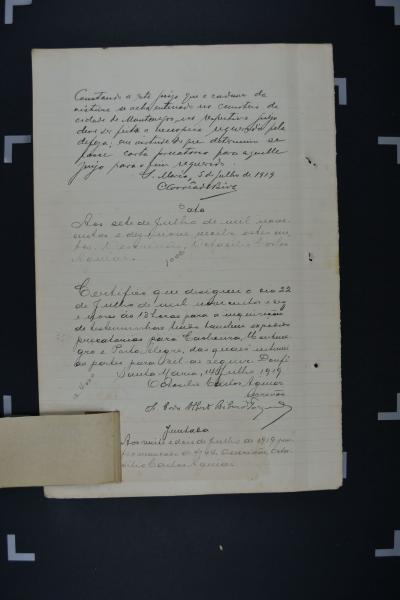 Constando a este juizo que o cadaver da
victima se acha enterrado no cemiterio da
cidade de Montenegro, no respectivo juizo
deve ser feita a necropsia requerida pela
defeza, em virtude do que determino se
passe carta precatoria para aquelle
juizo para o fim requerido.
S. Maria, 5 de Julho de 1919
Data
Aos sete de Julho de mil nove
centos e dezenove recebi estes au
tos. O escrivão, Octacilio Carlos
Aguiar.
1000
Certifico que designei o dia 22
de Julho de mil novecentos e dez
e nove ás 13 horas para a inquirição
de testemunhas. Tendo tambem expedido
precatorias para Cachoeira, Montene
gro e Porto Alegre, das quaes intimei
as partes para vel-as seguir. Doufé
Santa Maria, 14 Julho 1919
Octacilio Carlos Aguiar
Escrivão
Juntada
Aos vinte e dois de Julho de 1919 jun
Escrivão, Octa
cilio Carlos Aguiar